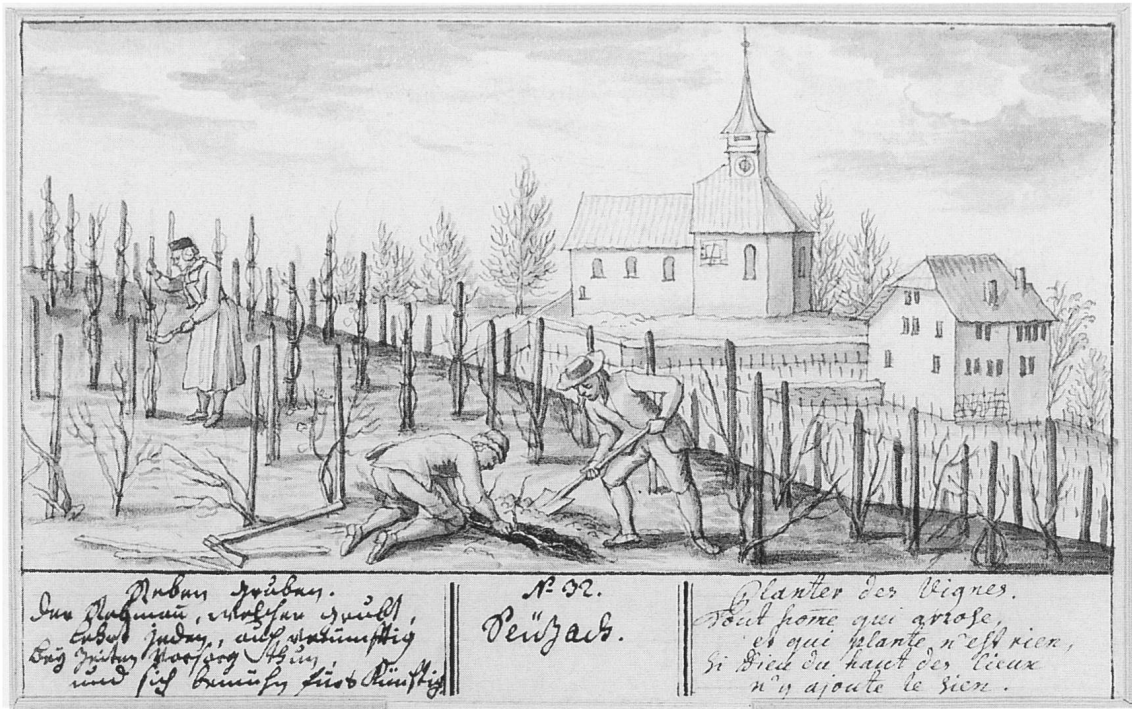 Reben gruben.
Der Rebmañ, welcher grubt,
lehrt jeden, auch vernünftig
Beÿ Zeiten Vorsorg Thun,
und sich bemühn fürs Künftig
N° 32.
Seüzach.
Planter des Vignes.
Tout hom̄e qui arrose,
et qui plante n'est rien,
Si Dieu du haut des Cieux
n'y ajoute le sien.